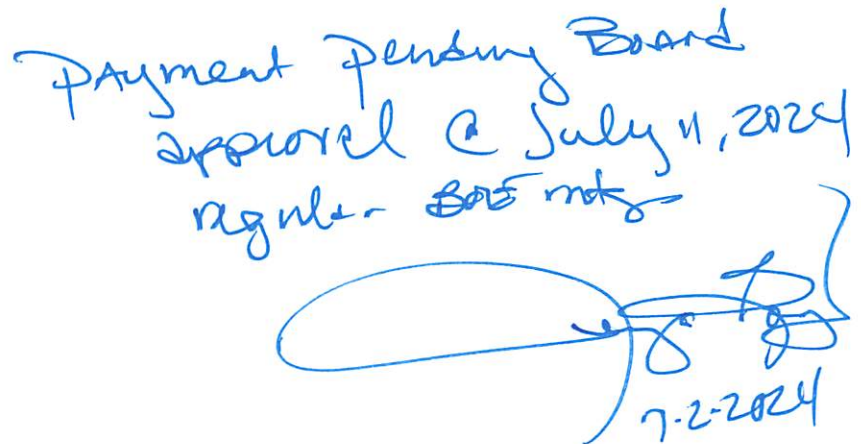 Payment pending Board
approval @ July 11, 2024
regular BOE mtg
7-2-2024